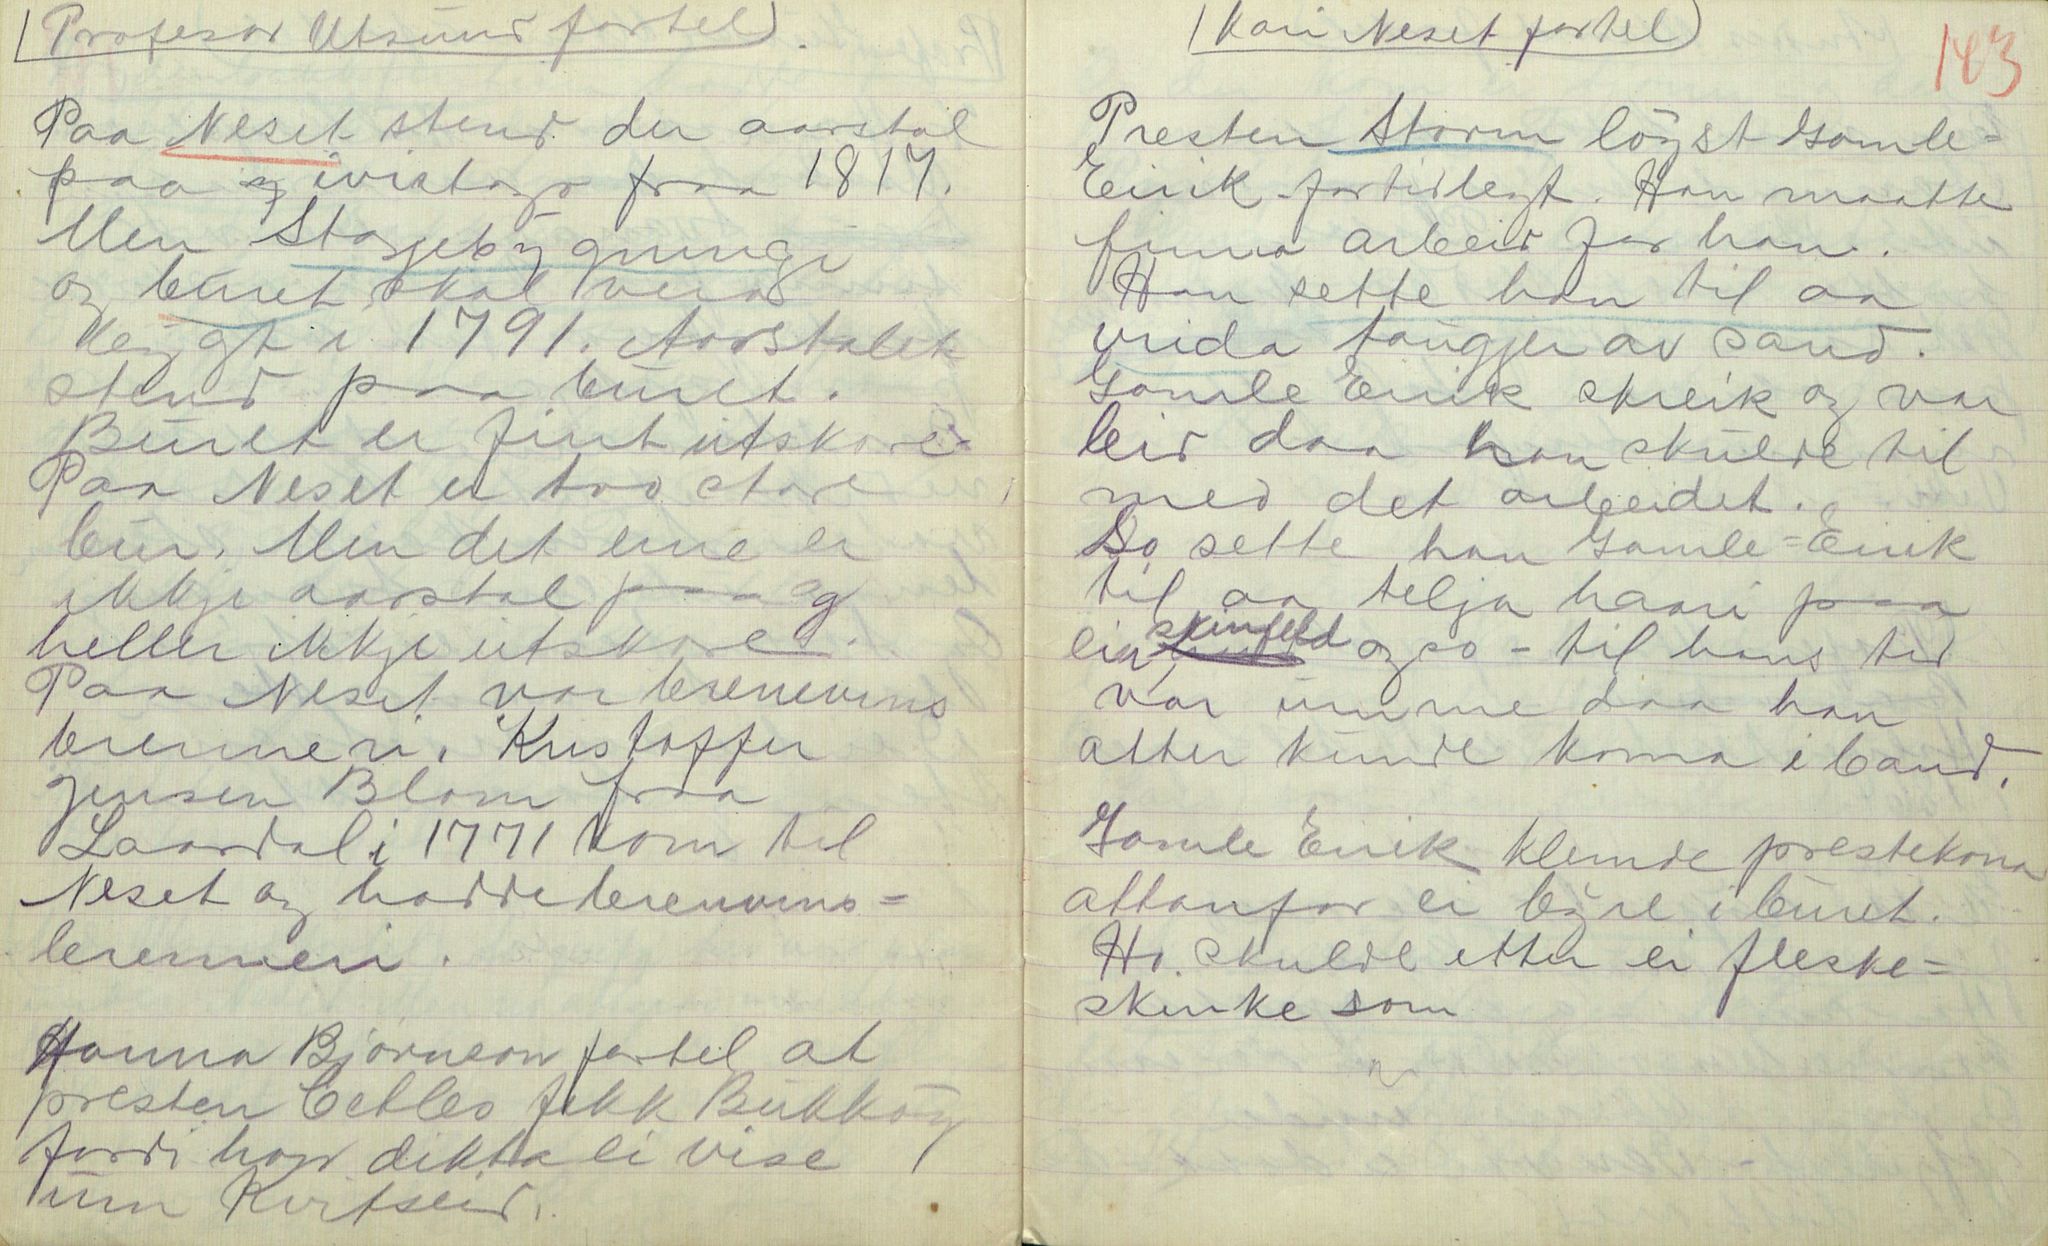 (Profesor Utsund fortel).
Paa Neset stend der aarstal
paa ivistogo fraa 1817.
Men Stogebygningi
og buret skal vera
bygt i 1791. Aarstalet
stend paa buret.
Buret er fint utskore.
Paa Neset er tvo store
bur. Men det eine er
ikkje aarstal paa og
heller ikkje utskore.
Paa Neset var brennevins
brenneri. Kristoffer
Jensen Blom fraa
Laardal i 1771 kom til
Neset og hadde brennvins=
brenneri.
Hanna Bjørnson fortel at
presten fekk
fordi han dikta ei vise
um Kvitseid.
(Kari Neset fortel)
143
Presten Storm løyst Gamle=
Eirik fortidlegt. Han maatte
finna arbeid for han.
Han sette han til aa
vrida taugjer av sand.
Gamle Eirik skreik og var
leid daa han skulde til
med det arbeidet.
So sette han Gamle=Eirik
til aa telja haari paa
ein skinfeld og so - til hans tid
var umme daa han
atter kunde koma i band.
Gamle Eirik klemde prestekona
attanfor ei byre i buret.
Ho skulde etter ei fleske=
skinke som